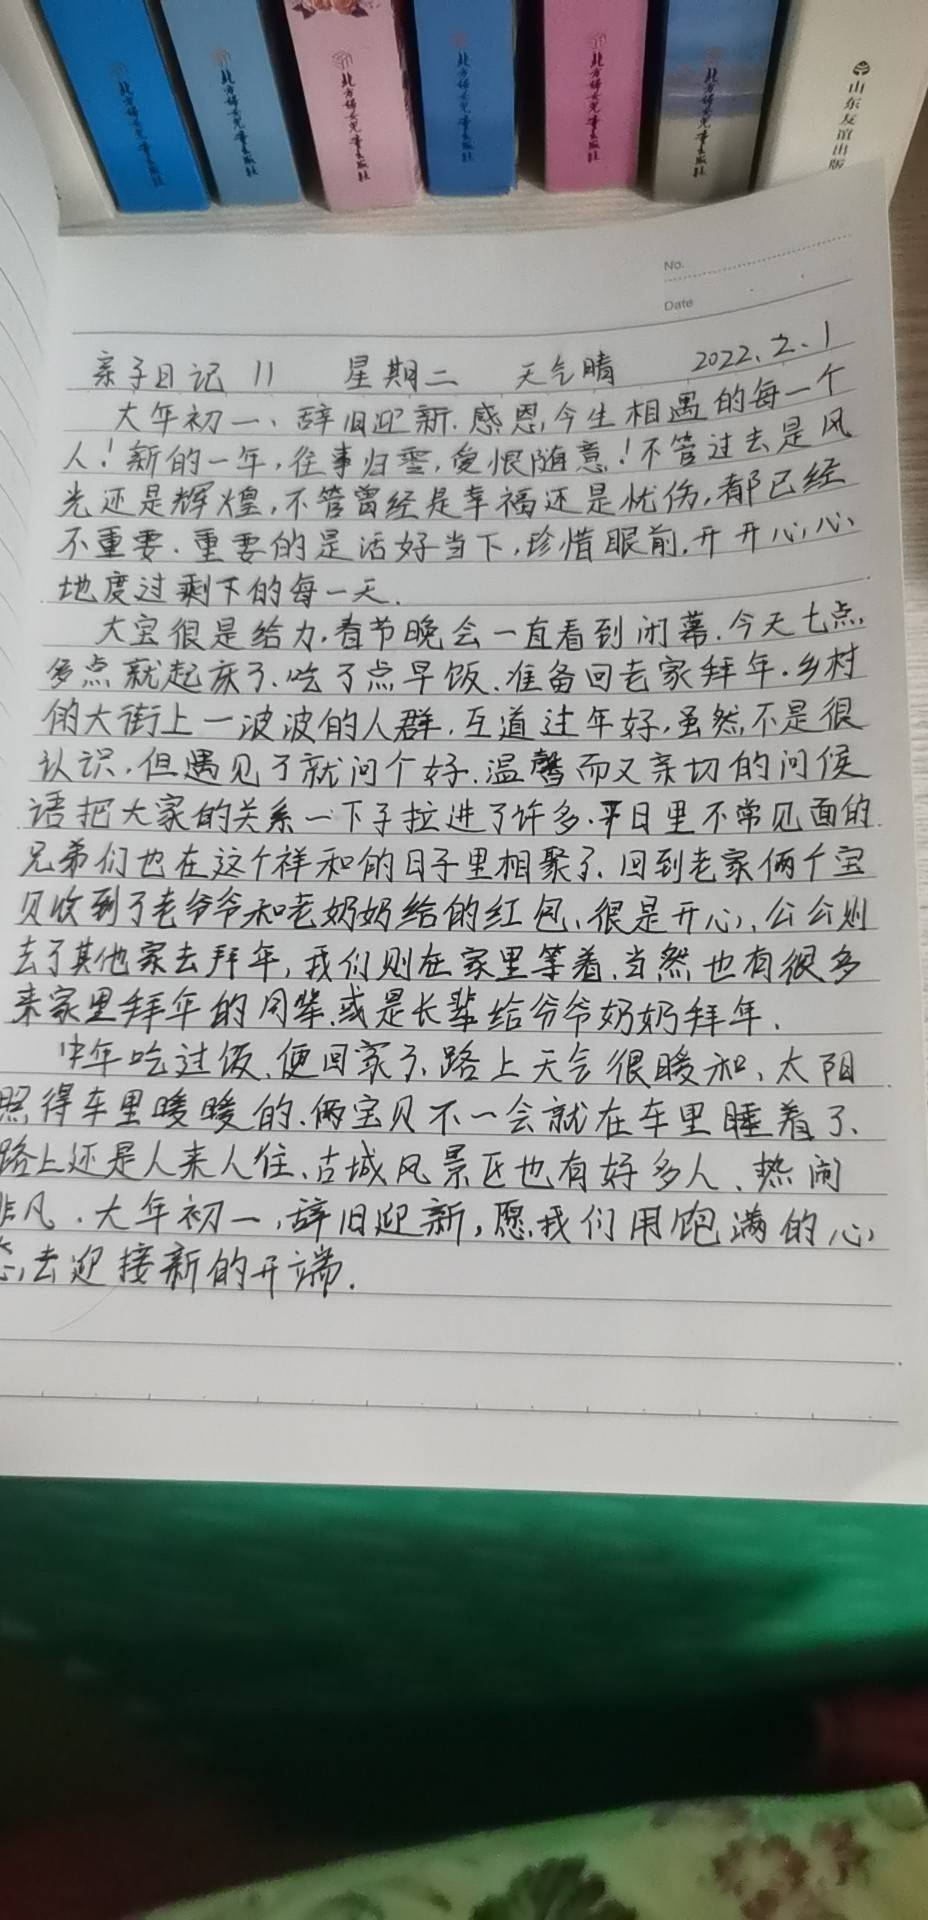 北方妇女儿童出版社
北方妇女儿童出版社
北方妇女儿童出版社
北方妇女儿童出版社
北方妇女儿童出版社
北方妇女儿童出版社
山东友谊出版
No.
Date
亲子日记 11 星期二 天气晴 2022.2.1
大年初一、辞旧迎新.感恩今生相遇的每一个
人！新的一年,往事归零,爱恨随意！不管过去是风
光还是辉煌,不管曾经是幸福还是忧伤,都已经
不重要.重要的是活好当下,珍惜眼前.开开心心
地度过剩下的每一天.
大宝很是给力.春节晚会一直看到闭幕.今天七点
多点就起床了.吃了点早饭.准备回老家拜年.乡村
的大街上一波波的人群,互道过年好,虽然不是很
认识,但遇见了就问个好.温馨而又亲切的问候
语把大家的关系一下子拉进了许多.平日里不常见面的
兄弟们也在这个祥和的日子里相聚了.回到老家俩个宝
贝收到了老爷爷和老奶奶给的红包、很是开心,公公则
去了其他家去拜年,我们则在家里等着.当然也有很多
来家里拜年的同辈.或是长辈给爷爷奶奶拜年.
中午吃过饭.便回家了.路上天气很暖和、太阳
照得车里暖暖的.俩宝贝不一会就在车里睡着了、
路上还是人来人往、古城风景区也有好多人、热闹
非凡.大年初一,辞旧迎新,愿我们用饱满的心
态,去迎接新的开端.